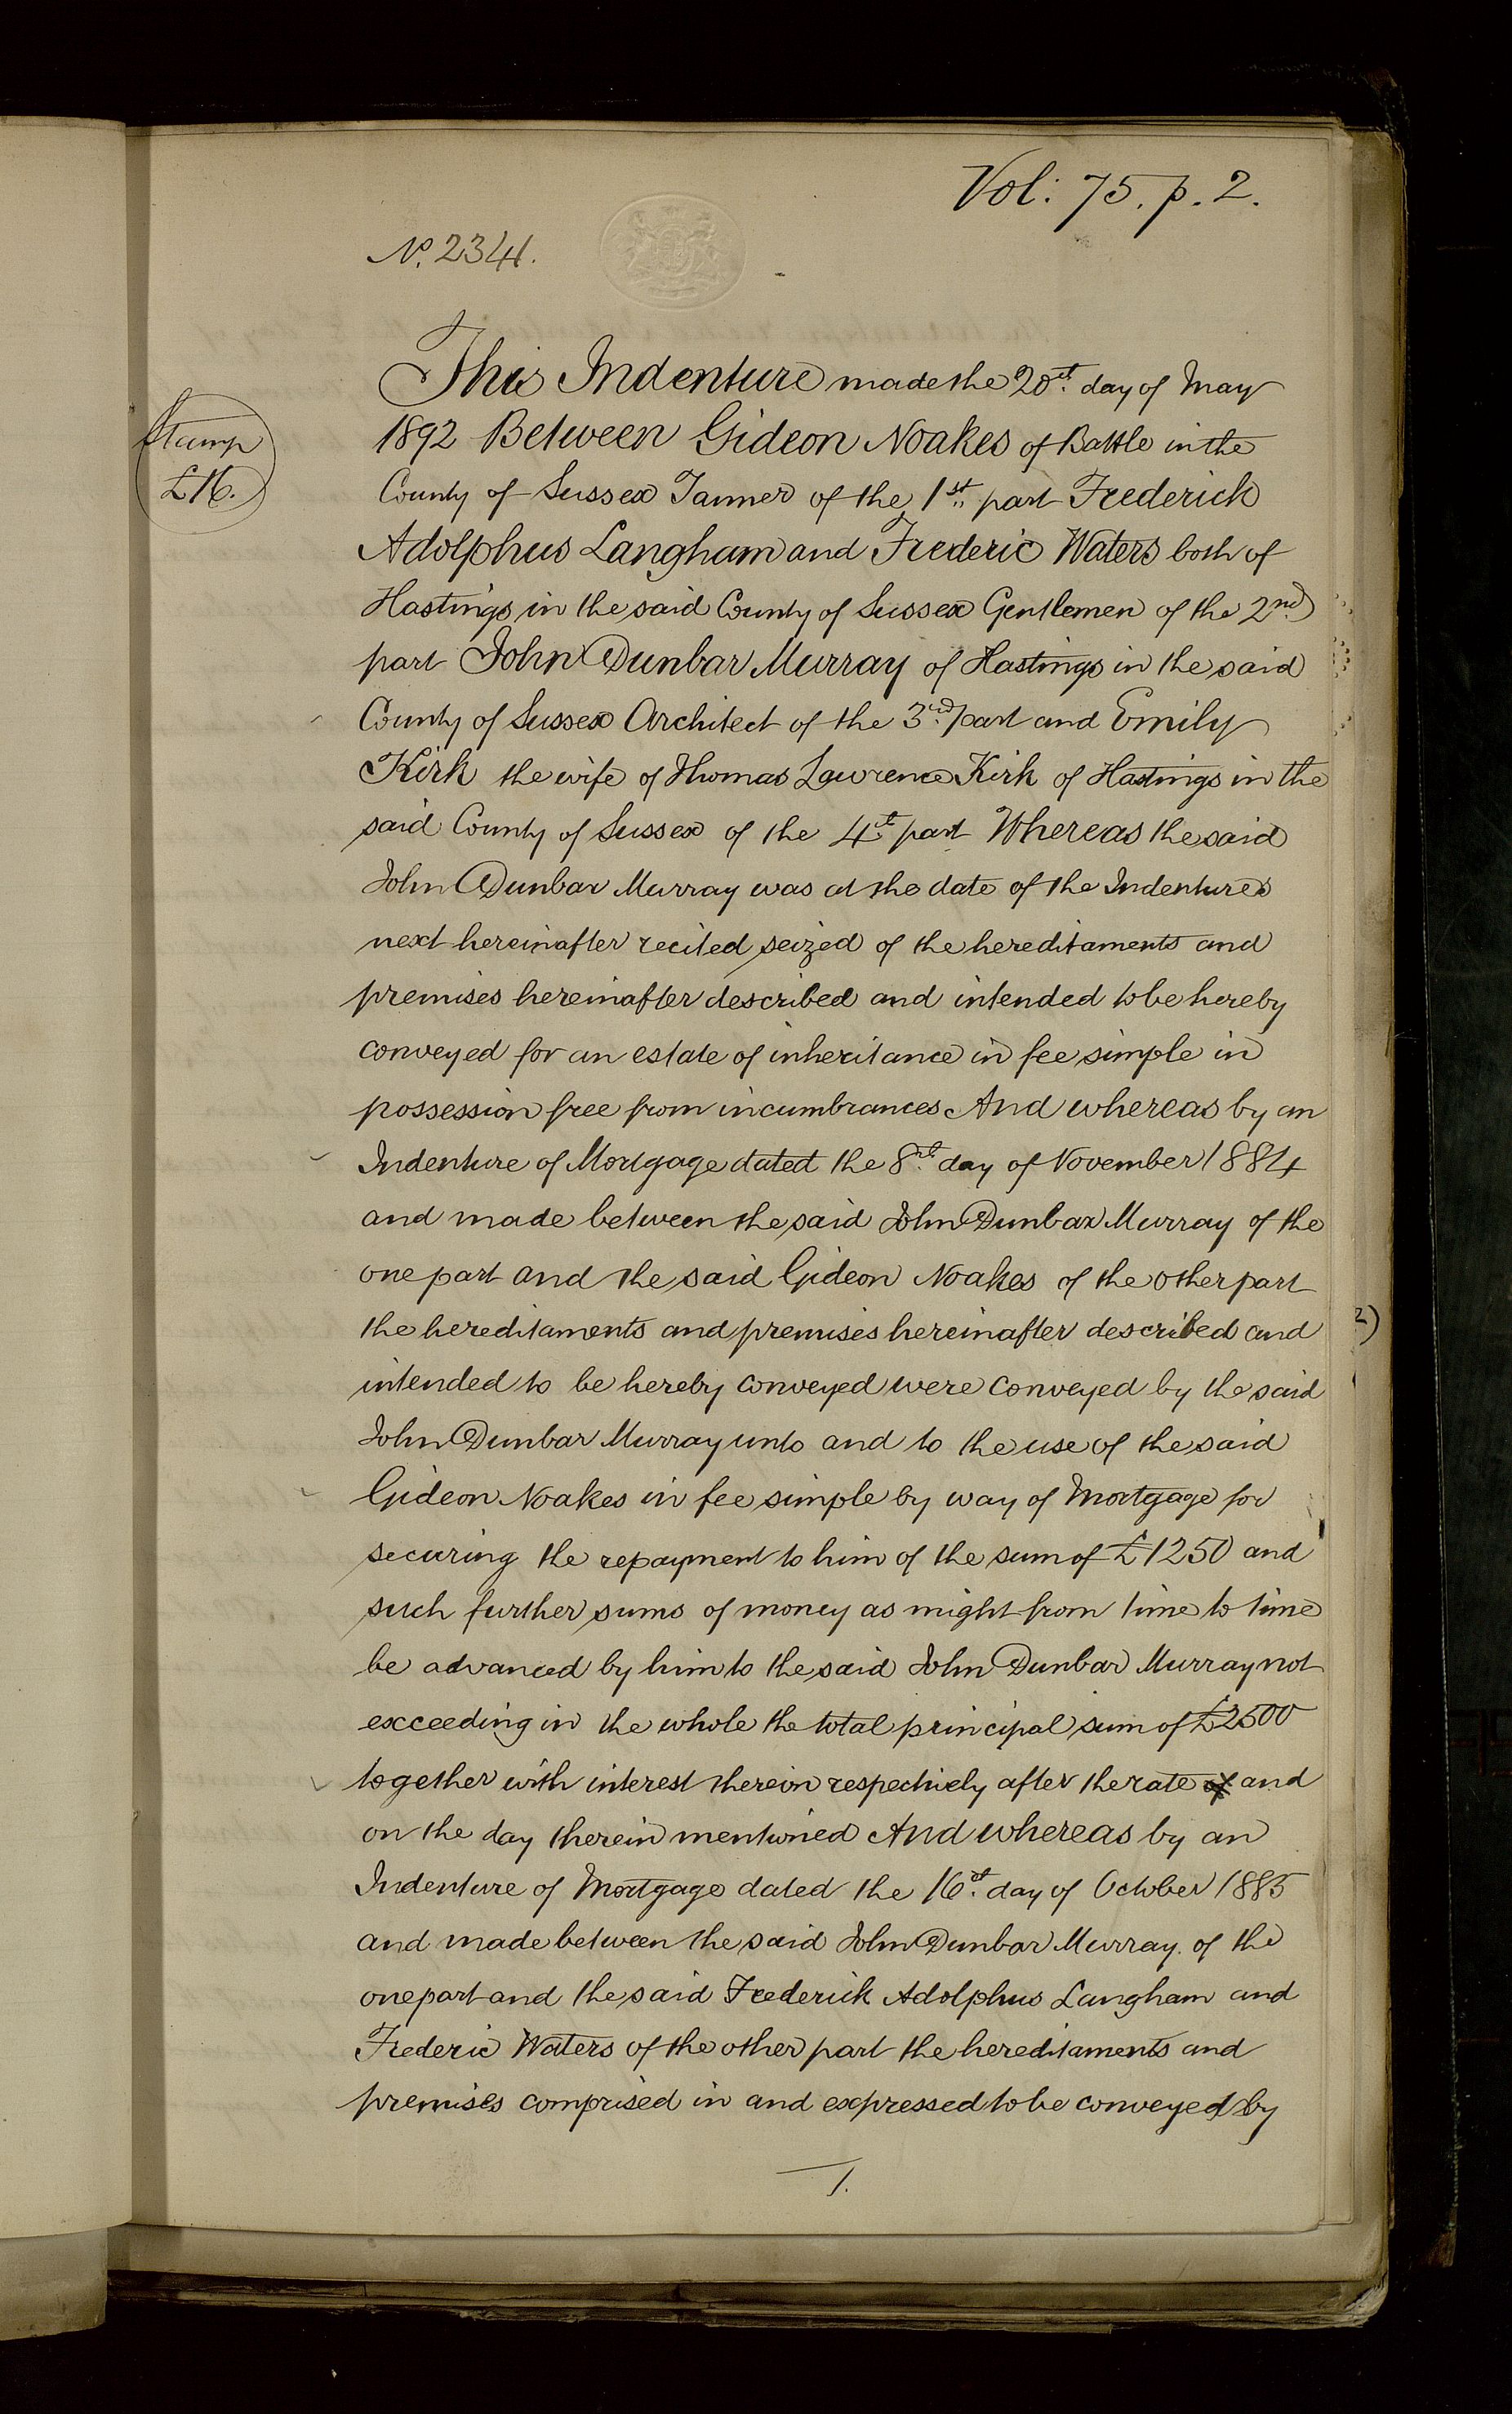 Vol: 75. p. 2.
No. 2341.
Stamp
£16.
This Indenture made the 20th. day of May
1892 Between Gideon Noakes of Battle in the
County of Sussex Tanner of the 1st. part Frederick
Adolphus Langham and Frederic Waters both of
Hastings in the said County of Sussex Gentlemen of the 2nd.
part John Dunbar Murray of Hastings in the said
County of Sussex Architect of the 3rd. part and Emily
Kirk the wife of Thomas Lawrence Kirk of Hastings in the
said County of Sussex of the 4th. part Whereas the said
John Dunbar Murray was at the date of the Indentures
next hereinafter recited seized of the hereditaments and
premises hereinafter described and intended to be hereby
conveyed for an estate of inheritance in fee simple in
possession free from incumbrances And whereas by an
Indenture of Mortgage dated the 8th. day of November 1884
and made between the said John Dunbar Murray of the
one part and the said Gideon Noakes of the other part
the hereditaments and premises hereinafter described and
intended to be hereby conveyed were conveyed by the said
John Dunbar Murray unto and to the use of the said
Gideon Noakes in fee simple by way of Mortgage for
securing the repayment to him of the sum of £1250 and
such further sums of money as might from time to time
be advanced by him to the said John Dunbar Murray not
exceeding in the whole the total principal sum of £2500
together with interest therein respectively after the rate and
on the day therein mentioned And whereas by an
Indenture of Mortgage dated the 16th. day of October 1885
and made between the said John Dunbar Murray of the
one part and the said Frederick Adolphus Langham and
Frederic Waters of the other part the hereditaments and
premises comprised in and expressed to be conveyed by
1.